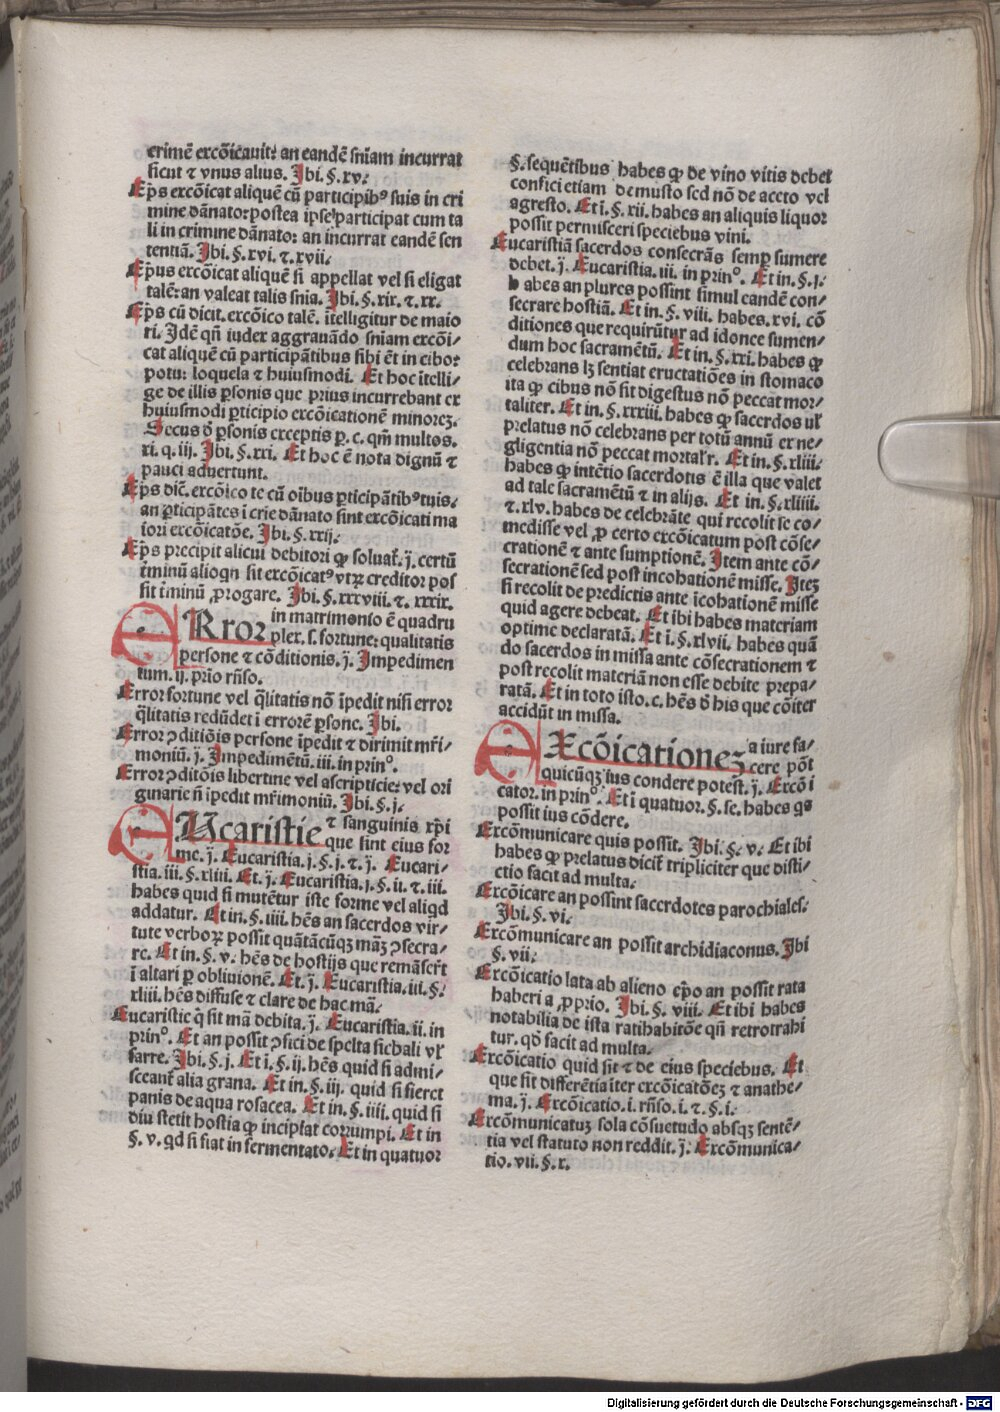 crimē excōicauit: an eandē sn̄iam incurrat
sicut ⁊ vnus alius. Ibi. §. xv.
Ep̄s excōicat aliquē cū participibꝰ suis in cri
mine dānato: postea ipse participat cum ta
li in crimine dānato: an incurrat eandē sen
tentiā. Ibi. §. xvi. ⁊. xvii.
Ep̄us excōicat aliquē si appellat vel si eligat
talē: an valeat talis snīa. Ibi. §. xix. ⁊. xx.
Ep̄s cū dicit. excōico talē. ītelligitur de maio
ri. Idē qn̄ iudex aggrauādo sn̄iam excōi/
cat aliquē cū participātibus sibi ēt in cibo:
potu: loquela ⁊ huiusmodi. Et hoc ītelli/
ge de illis ꝑsonis que prius incurrebant ex
huiusmodi ꝑticipio excōicationē minorez.
Secus ð ꝑsonis exceptis ꝑ. c. qm̄ multos.
xi. q. iij. Ibi. §. xxi. Et hoc ē nota dignū ⁊
pauci aduertunt.
Ep̄s dic̄. excōico te cū oībus ꝑticipātibꝰ tuis.
an ꝑticipātes ī crīe dānato sint excōicati ma
iori excōicatōe. Ibi. §. xxij.
Ep̄s precipit alicui debitori ꝙ soluat. j. certū
t̄minū alioqn̄ sit excōicatꝰ vtꝝ creditor pos
sit t̄minū ꝓrogare. Ibi. §. xxxviii. ⁊. xxxix.
ERror in matrimonio ē quadru
plex. s. fortune: qualitatis
persone ⁊ cōditionis. j. Impedimen
tum. ij. prīo rn̄so.
Error fortune vel q̄litatis nō īpedit nisi error
q̄litatis redūdet ī errorē ꝑsone. Ibi.
Error ꝯditiōis persone īpedit ⁊ dirimit mr̄i/
moniū. j. Impedimētū. iii. in prin°.
Error ꝯditiōis libertine vel ascripticie: vel ori
ginarie n̄ īpedit mr̄imoniū. Ibi. §. j.
EUcaristie ⁊ sanguinis xp̄i
que sint eius for
me. j. Eucaristia. j. §. j. ⁊. j. Eucari/
stia. iii. §. xliii. Et. j. Eucaristia. j. §. ii. ⁊. iii.
habes quid si mutētur iste forme vel aliqd
addatur. Et in. §. iiii. hēs an sacerdos vir/
tute verboꝝ possit quātācūqꝫ māꝫ ꝯsecra/
re. Et in. §. v. hēs de hostijs que remāser̄t
ī altari ꝑ obliuionē. Et. j. Eucaristia. iii. §.
xliii. hēs diffuse ⁊ clare de hac mā.
Eucaristie q̄ sit mā debita. j. Eucaristia. ii. in
prin°. Et an possit ꝯfici de spelta sichali vl̄
farre. Ibi. §. j. Et ī. §. ij. hēs quid si admi/
sceant̄ alia grana. Et in. §. iij. quid si fieret
panis de aqua rosacea. Et in. §. iiii. quid si
diu stetit hostia ꝙ incipiat corrumpi. Et in
§. v. qd si fiat in fermentato. Et in quatuor
§. sequētibus habes ꝙ de vino vitis debet
confici etiam de musto sed nō de aceto vel
agresto. Et ī. §. xii. habes an aliquis liquor
possit permisceri speciebus vini.
Eucaristiā sacerdos consecrās semꝑ sumere
debet. j. Eucaristia. iii. in prin°. Et in. §. j.
habes an plures possint simul eandē con/
secrare hostiā. Et in. §. viii. habes. xvi. cō
ditiones que requirūtur ad idonee sumen/
dum hoc sacramētū. Et in. §. xxi. habes ꝙ
celebrans lꝫ sentiat eructatiōes in stomaco
ita ꝙ cibus nō sit digestus nō peccat mor/
taliter. Et in. §. xxxiii. habes ꝙ sacerdos vl̄
prelatus nō celebrans per totū annū ex ne/
gligentia nō peccat mortalr̄. Et in. §. xliii.
habes ꝙ intētio sacerdotis ē illa que valet
ad tale sacramētū ⁊ in alijs. Et in §. xliiii.
⁊. xlv. habes de celebrāte qui recolit se co/
medisse vel ꝓ certo excōicatum post cōse/
crationē ⁊ ante sumptionē. Item ante cō/
secrationē sed post incohationē misse. Iteꝫ
si recolit de predictis ante īcohationē misse
quid agere debeat. Et ibi habes materiam
optime declaratā. Et ī. §. xlvii. habes quā
do sacerdos in missa ante cōsecrationem ⁊
post recolit materiā non esse debite prepa/
ratā. Et in toto isto. c. hēs ð his que cōiter
accidūt in missa.
EXcōicationeꝫ a iure fa/
cere pōt
quicūqꝫ ius condere potest. j. Excōi
cator. in prin°. Et ī quatuor. §. se. habes qs
possit ius cōdere.
Excōmunicare quis possit. Ibi. §. v. Et ibi
habes ꝙ prelatus dicit̄ tripliciter que disti/
ctio facit ad multa.
Excōicare an possint sacerdotes parochiales.
Ibi. §. vi.
Excōmunicare an possit archidiaconus. Ibi
§. vii.
Excōicatio lata ab alieno ep̄o an possit rata
haberi a ꝓprio. Ibi. §. viii. Et ibi habes
notabilia de ista ratihabitōe qn̄ retrotrahi
tur. qd̄ facit ad multa.
Excōicatio quid sit ⁊ de eius speciebus. Et
que sit differētia īter excōicatōeꝫ ⁊ anathe/
ma. j. Excōicatio. i. rn̄so. i. ⁊. §. i.
Excōmunicatuꝫ sola cōsuetudo absqꝫ sentē/
tia vel statuto non reddit. j. Excōmunica/
tio. vii. §. x.
Digitalisierung gefördert durch die Deutsche Forschungsgemeinschaft - DFG